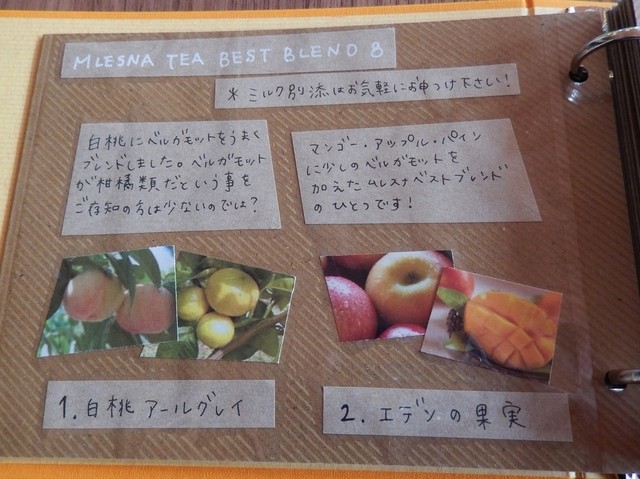 MLESNA TEA BEST BLEND 8
* ミルク別添はお気軽にお申つけ下さい!
白桃にベルガモットをうまく
ブレンドしました。ベルガモット
が柑橘類だという事を
ご存知の方は少ないのでは?
マンゴー・アップル・パイン
に少しのベルガモットを
加えたムレスナベストブレンド
のひとつです!
1. 白桃アールグレイ
2. エデンの果実